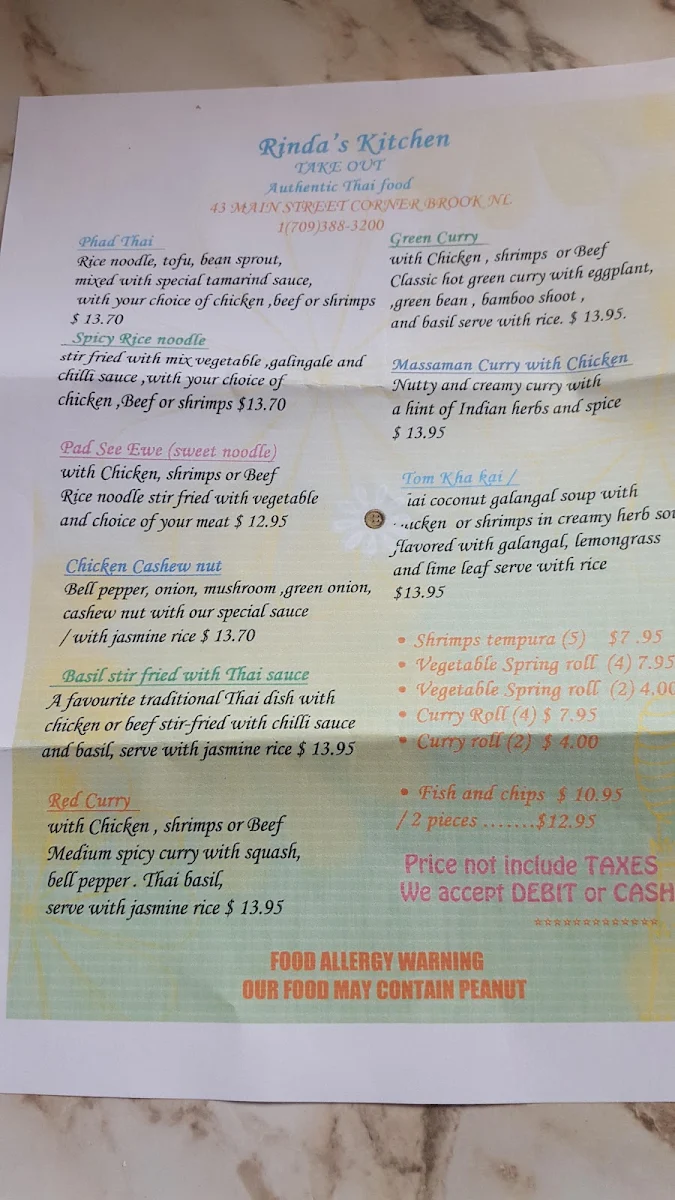 Rinda's Kitchen
TAKE OUT
Authentic Thai food
43 MAIN STREET CORNER BROOK NL
1(709)388-3200
Phad Thai
Rice noodle, tofu, bean sprout,
mixed with special tamarind sauce,
with your choice of chicken ,beef or shrimps
$ 13.70
Spicy Rice noodle
stir fried with mix vegetable ,galingale and
chilli sauce ,with your choice of
chicken ,Beef or shrimps $13.70
Pad See Ewe (sweet noodle)
with Chicken, shrimps or Beef
Rice noodle stir fried with vegetable
and choice of your meat $ 12.95
Chicken Cashew nut
Bell pepper, onion, mushroom ,green onion,
cashew nut with our special sauce
/ with jasmine rice $ 13.70
Basil stir fried with Thai sauce
A favourite traditional Thai dish with
chicken or beef stir-fried with chilli sauce
and basil, serve with jasmine rice $ 13.95
Red Curry
with Chicken , shrimps or Beef
Medium spicy curry with squash,
bell pepper . Thai basil,
serve with jasmine rice $ 13.95
Green Curry
with Chicken , shrimps or Beef
Classic hot green curry with eggplant,
,green bean , bamboo shoot ,
and basil serve with rice. $ 13.95.
Massaman Curry with Chicken
Nutty and creamy curry with
a hint of Indian herbs and spice
$ 13.95
Tom Kha kai /
coconut galangal soup with
or shrimps in creamy herb
flavored with galangal, lemongrass
and lime leaf serve with rice
$13.95
• Shrimps tempura (5) $7 .95
• Vegetable Spring roll (4) 7.95
• Vegetable Spring roll (2) 4.00
• Curry Roll (4) $ 7.95
• Curry roll (2) $ 4.00
• Fish and chips $ 10.95
/ 2 pieces .......$12.95
Price not include TAXES
We accept DEBIT or CASH
*************
FOOD ALLERGY WARNING
OUR FOOD MAY CONTAIN PEANUT